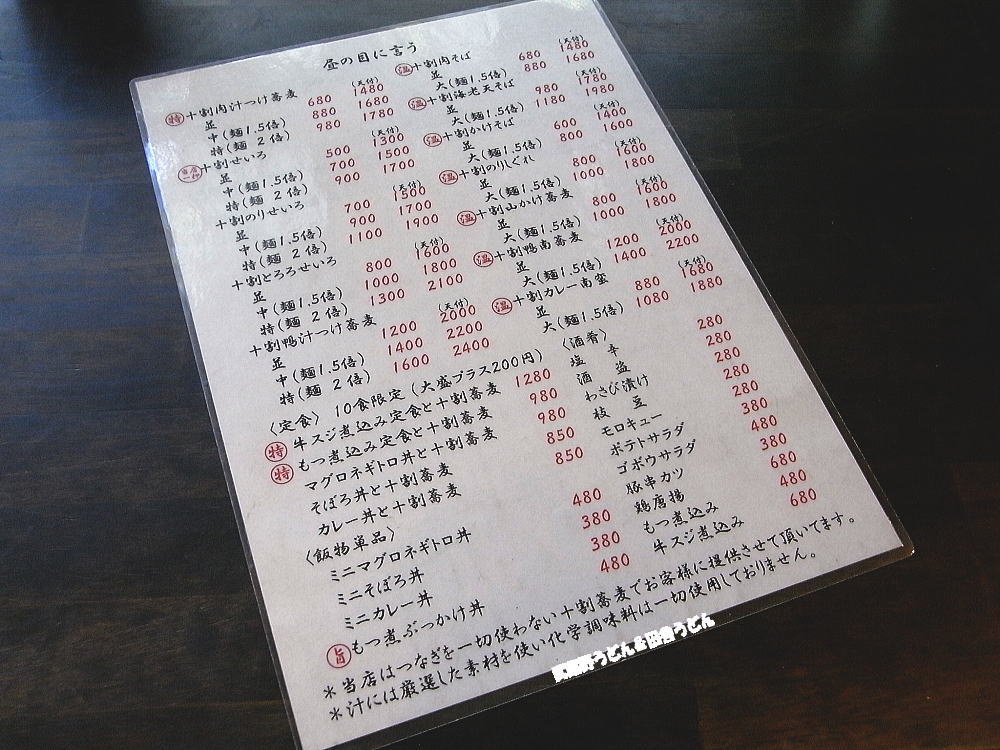 昼の目に言う
特 十割肉汁つけ蕎麦 (天付)
並 680 1480
中(麺1.5倍) 880 1680
特(麺 2 倍) 980 1780
十割せいろ (天付)
並 500 1300
中(麺1.5倍) 700 1500
特(麺 2 倍) 900 1700
十割のりせいろ (天付)
並 700 1500
中(麺1.5倍) 900 1700
特(麺 2 倍) 1100 1900
十割とろろせいろ (天付)
並 800 1600
中(麺1.5倍) 1000 1800
特(麺 2 倍) 1300 2100
十割鴨汁つけ蕎麦 (天付)
並 1200 2000
中(麺1.5倍) 1400 2200
特(麺 2 倍) 1600 2400
〈定食〉 10食限定 (大盛プラス200円)
特 牛スジ煮込み定食と十割蕎麦 1280
特 もつ煮込み定食と十割蕎麦 980
マグロネギトロ丼と十割蕎麦 980
そぼろ丼と十割蕎麦 850
カレー丼と十割蕎麦 850
〈飯物単品〉
ミニマグロネギトロ丼 480
ミニそぼろ丼 380
ミニカレー丼 380
旨 もつ煮ぶっかけ丼 480
温 十割肉そば (天付)
並 680 1480
大(麺1.5倍) 880 1680
温 十割海老天そば
並 980 1780
大(麺1.5倍) 1180 1980
温 十割かけそば (天付)
並 600 1400
大(麺1.5倍) 800 1600
温 十割のりしぐれ (天付)
並 800 1600
大(麺1.5倍) 1000 1800
温 十割山かけ蕎麦 (天付)
並 800 1600
大(麺1.5倍) 1000 1800
温 十割鴨南蕎麦 (天付)
並 1200 2000
大(麺1.5倍) 1400 2200
温 十割カレー南蛮 (天付)
並 880 1680
大(麺1.5倍) 1080 1880
〈酒肴〉
塩 辛 280
酒 盗 280
わさび漬け 280
枝 豆 280
モロキュー 280
ポテトサラダ 380
ゴボウサラダ 480
豚串カツ 380
鶏唐揚 680
もつ煮込み 480
牛スジ煮込み 680
*当店はつなぎを一切使わない十割蕎麦でお客様に提供させて頂いてます。
*汁には厳選した素材を使い化学調味料は一切使用しておりません。
武蔵野うどん&田舎うどん